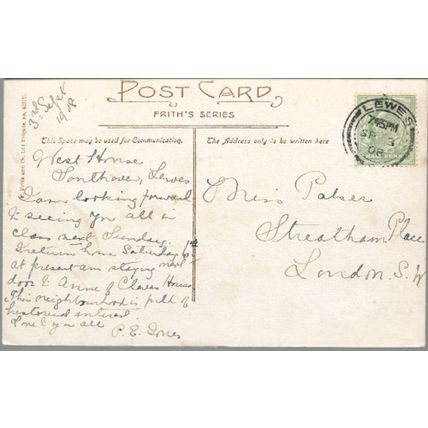 POST CARD
FRITH'S SERIES
This Space may be used for Communication.
The Address only to be written here
3rd Sept
1908
West House
Southover, Lewes
I am looking forward
to seeing you all in
class next Sunday.
I return home Saturday
at present am staying next
door to Anne of Cleves House
This neighbourhood is full of
historical interest
Love to you all
P. E. Jones
LEWES
7.45PM
SP 3
08
HALF PENNY
Miss
Streatham Place
London. S. W